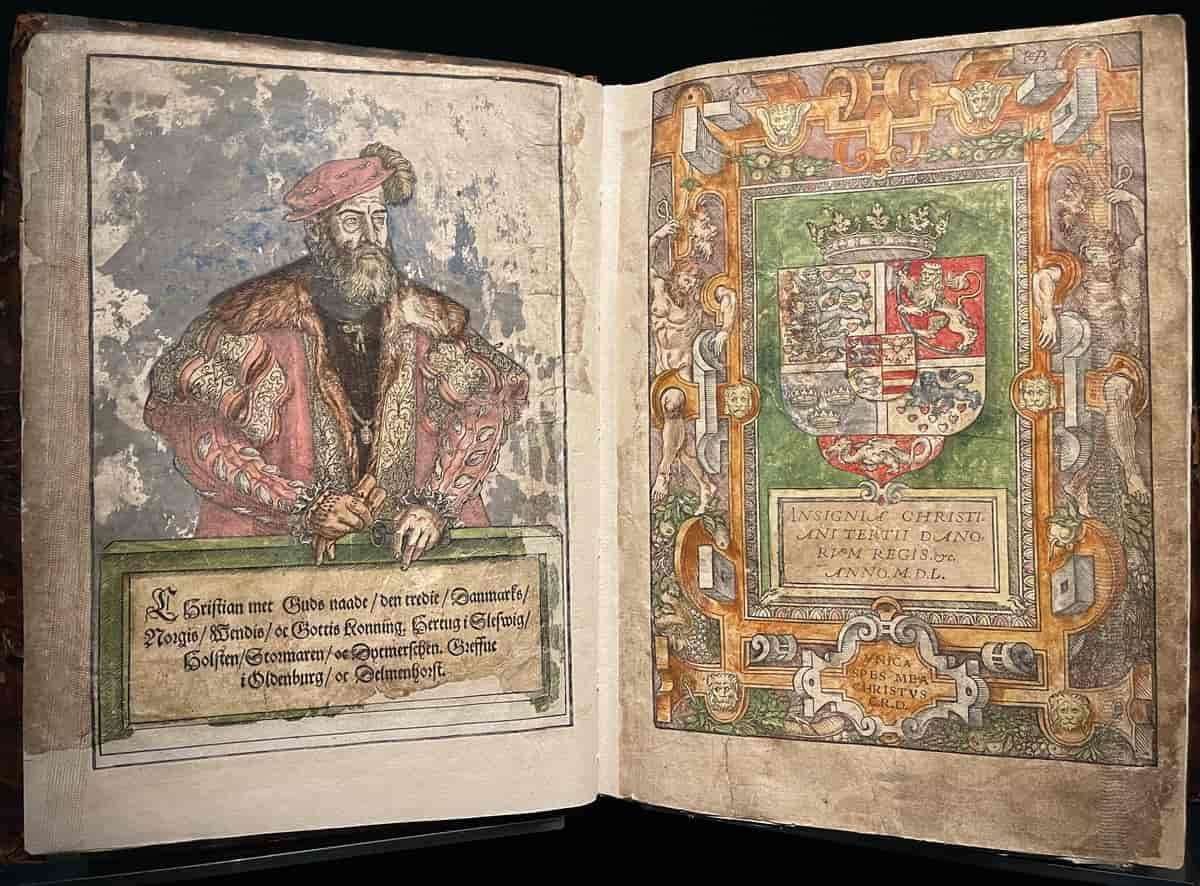 Christian met Guds naade / den tredie / Danmarks /
Norgis / Wendis / oc Gottis Konning, Hertug i Sleswig /
Holsten / Stormaren / oc Dytmerschen. Greffue
i Oldenburg / oc Delmenhorst.
INSIGNIA CHRISTI-
ANI TERTII DANO-
RVM REGIS.&c.
ANNO, M.D.L.
VNICA
SPES MEA
CHRISTVS
C.R.D.